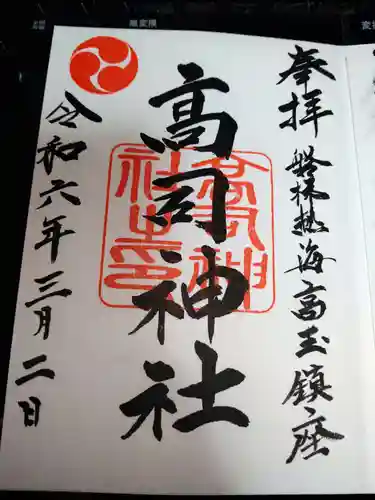 奉拝 磐梯熱海高玉鎮座
高司神社
高司神社之印
令和六年三月二日
無変換